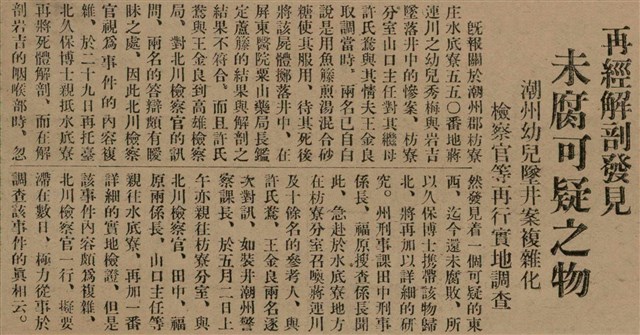 再經解剖發見
未腐可疑之物
潮州幼兒墜井案複雜化
檢察官等再行實地調查
既報關於潮州郡枋寮
庄水底寮五五〇番地蔣
連川之幼兒秀梅與岩吉
墜落井中的慘案、枋寮
分室山口主任對其繼母
許氏鴦與其情夫王金良
取調當時、兩名已自白
說是用魚籐煎湯混合砂
糖使其服用、待其死後
將該屍體擲落井中、在
屏東醫院粟山藥局長鑑
定蘆籐的結果與解剖之
結果不符合、而且許氏
鴦與王金良到高雄檢察
局、對北川檢察官的訊
問、兩名的答辯頗有曖
昧之處、因此北川檢察
官視為事件的內容複
雜、於二十九日再托臺
北久保博士親抵水底寮
再將死體解剖、而在解
剖岩吉的咽喉部時、忽
然發見着一個可疑的東
西、迄今還未腐敗、所
以久保博士携帶該物歸
北、將再加以詳細的研
究。州刑事課田中刑事
係長、福原搜查係長聞
此、急赴於水底寮地方
在枋寮分室召喚蔣連川
及十餘名的參考人、與
許氏鴦、王金良兩名逐
次對訊、如裝井潮州警
察課長、於五月二日上
午亦親往枋寮分室、與
北川檢察官、田中、福
原兩係長、山口主任等
親往水底寮、再加一番
詳細的實地檢證、但是
該事件內容頗為複雜、
北川檢察官一行、擬要
滯在數日、極力從事於
調查該事件的真相云。